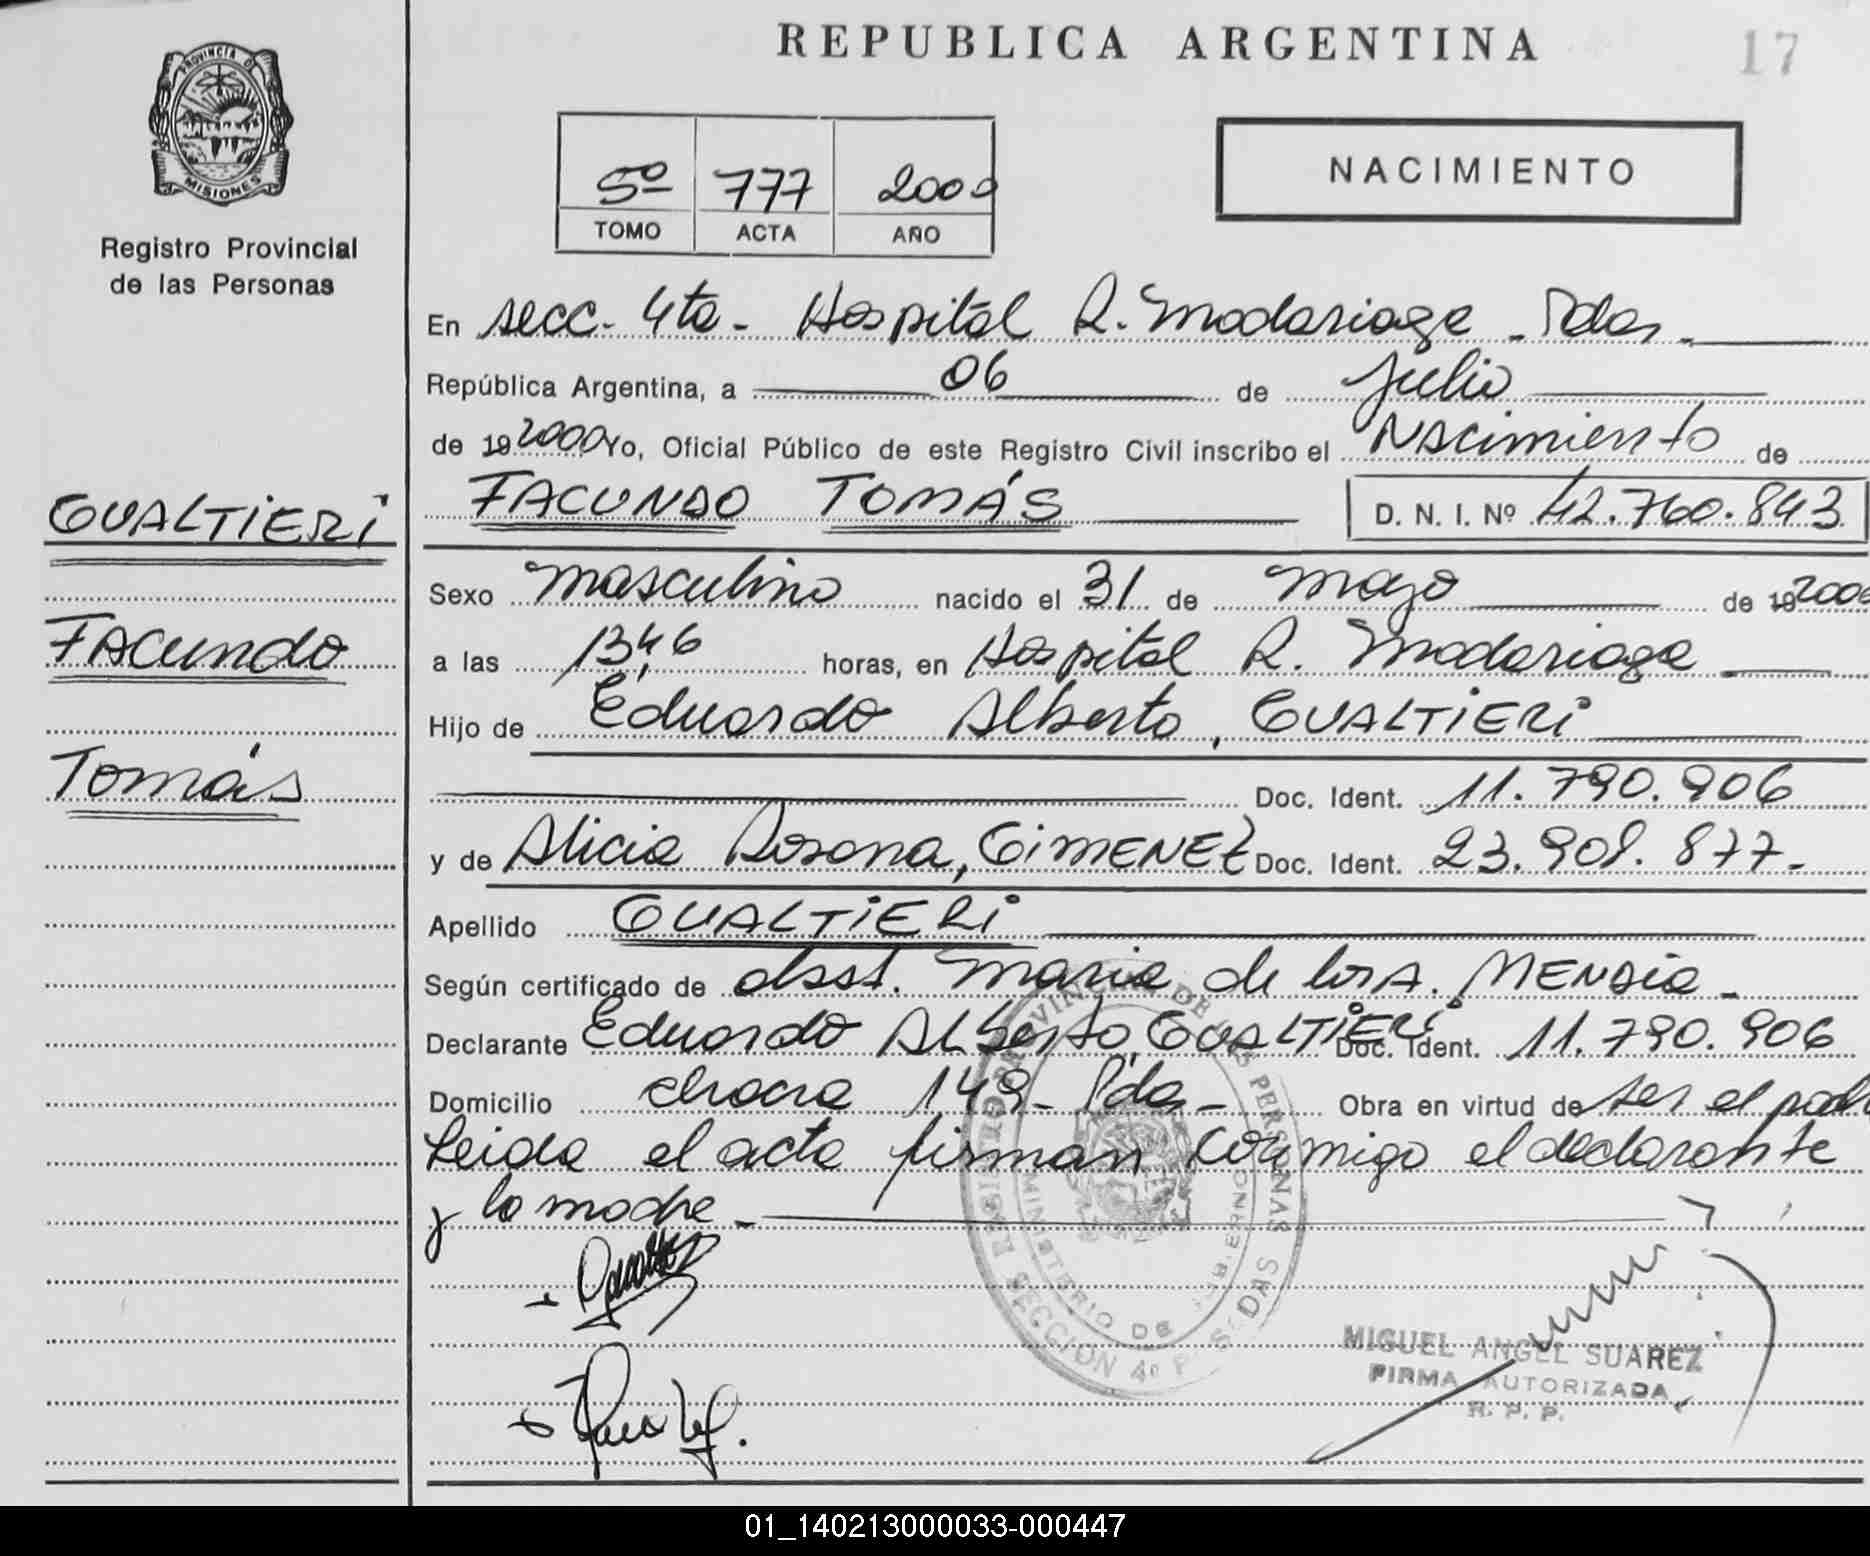 REPUBLICA ARGENTINA
17
PROVINCIA DE
MISIONES
Registro Provincial
de las Personas
5º 777 2000
TOMO ACTA AÑO
NACIMIENTO
En secc. 4ta - Hospital R. Madariaga - Pdas -
República Argentina, a 06 de Julio
de 19 2000 Yo, Oficial Público de este Registro Civil inscribo el Nacimiento de
FACUNDO TOMÁS D. N. I. Nº 42.760.843
GUALTIERI
Facundo
Tomás
Sexo masculino nacido el 31 de mayo de 19 2000
a las 13,46 horas, en Hospital R. Madariaga
Hijo de Eduardo Alberto, GUALTIERI
Doc. Ident. 11.790.906
y de Alicia Rosana, GIMENEZ Doc. Ident. 23.908.877-
Apellido GUALTIERI
Según certificado de obsst. Maria de los A. MENDIA -
Declarante Eduardo Alberto, GUALTIERI Doc. Ident. 11.790.906
Domicilio chacra 149 - Pdas - Obra en virtud de ser el padre
Leida el acta firman conmigo el declarante
y la madre -
REGISTRO PROVINCIAL DE LAS PERSONAS
MINISTERIO DE GOBIERNO
SECCION 4º POSADAS
MIGUEL ANGEL SUAREZ
FIRMA AUTORIZADA
R. P. P.
01_140213000033-000447